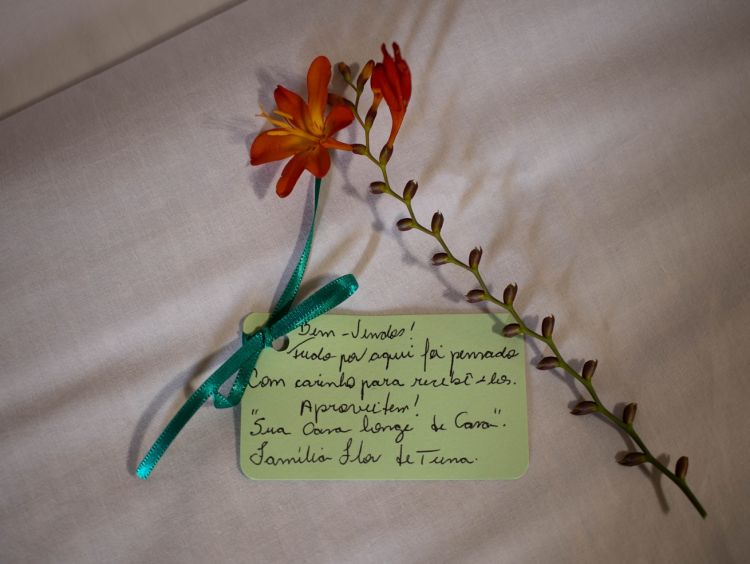 Bem-Vindos!
Tudo por aqui foi pensado
Com carinho para recebê-los.
Aproveitem!
"Sua Casa longe de Casa".
Família Flor de Tuna.